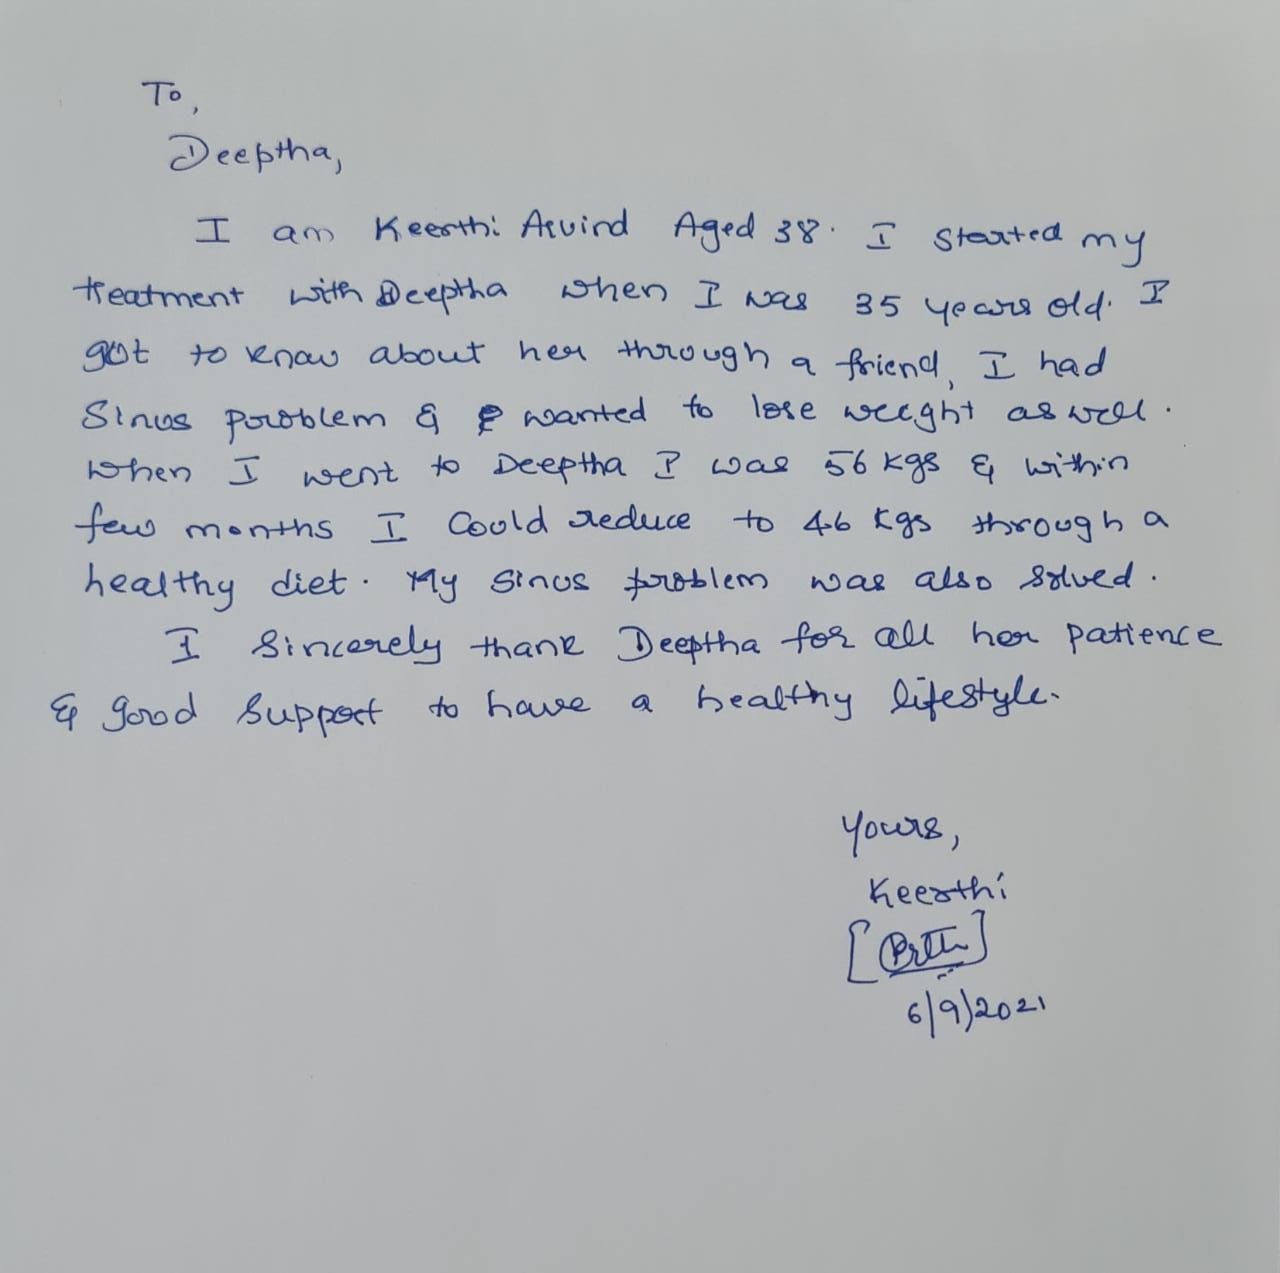 To,
Deeptha,
I am Keerthi Arvind Aged 38. I started my
treatment with Deeptha when I was 35 years old. I
got to know about her through a friend, I had
Sinus problem & wanted to lose weight as well.
When I went to Deeptha I was 56 kgs & within
few months I Could reduce to 46 kgs through a
healthy diet. My sinus problem was also solved.
I Sincerely thank Deeptha for all her patience
& good Support to have a healthy lifestyle.
Yours,
Keerthi
6/9/2021